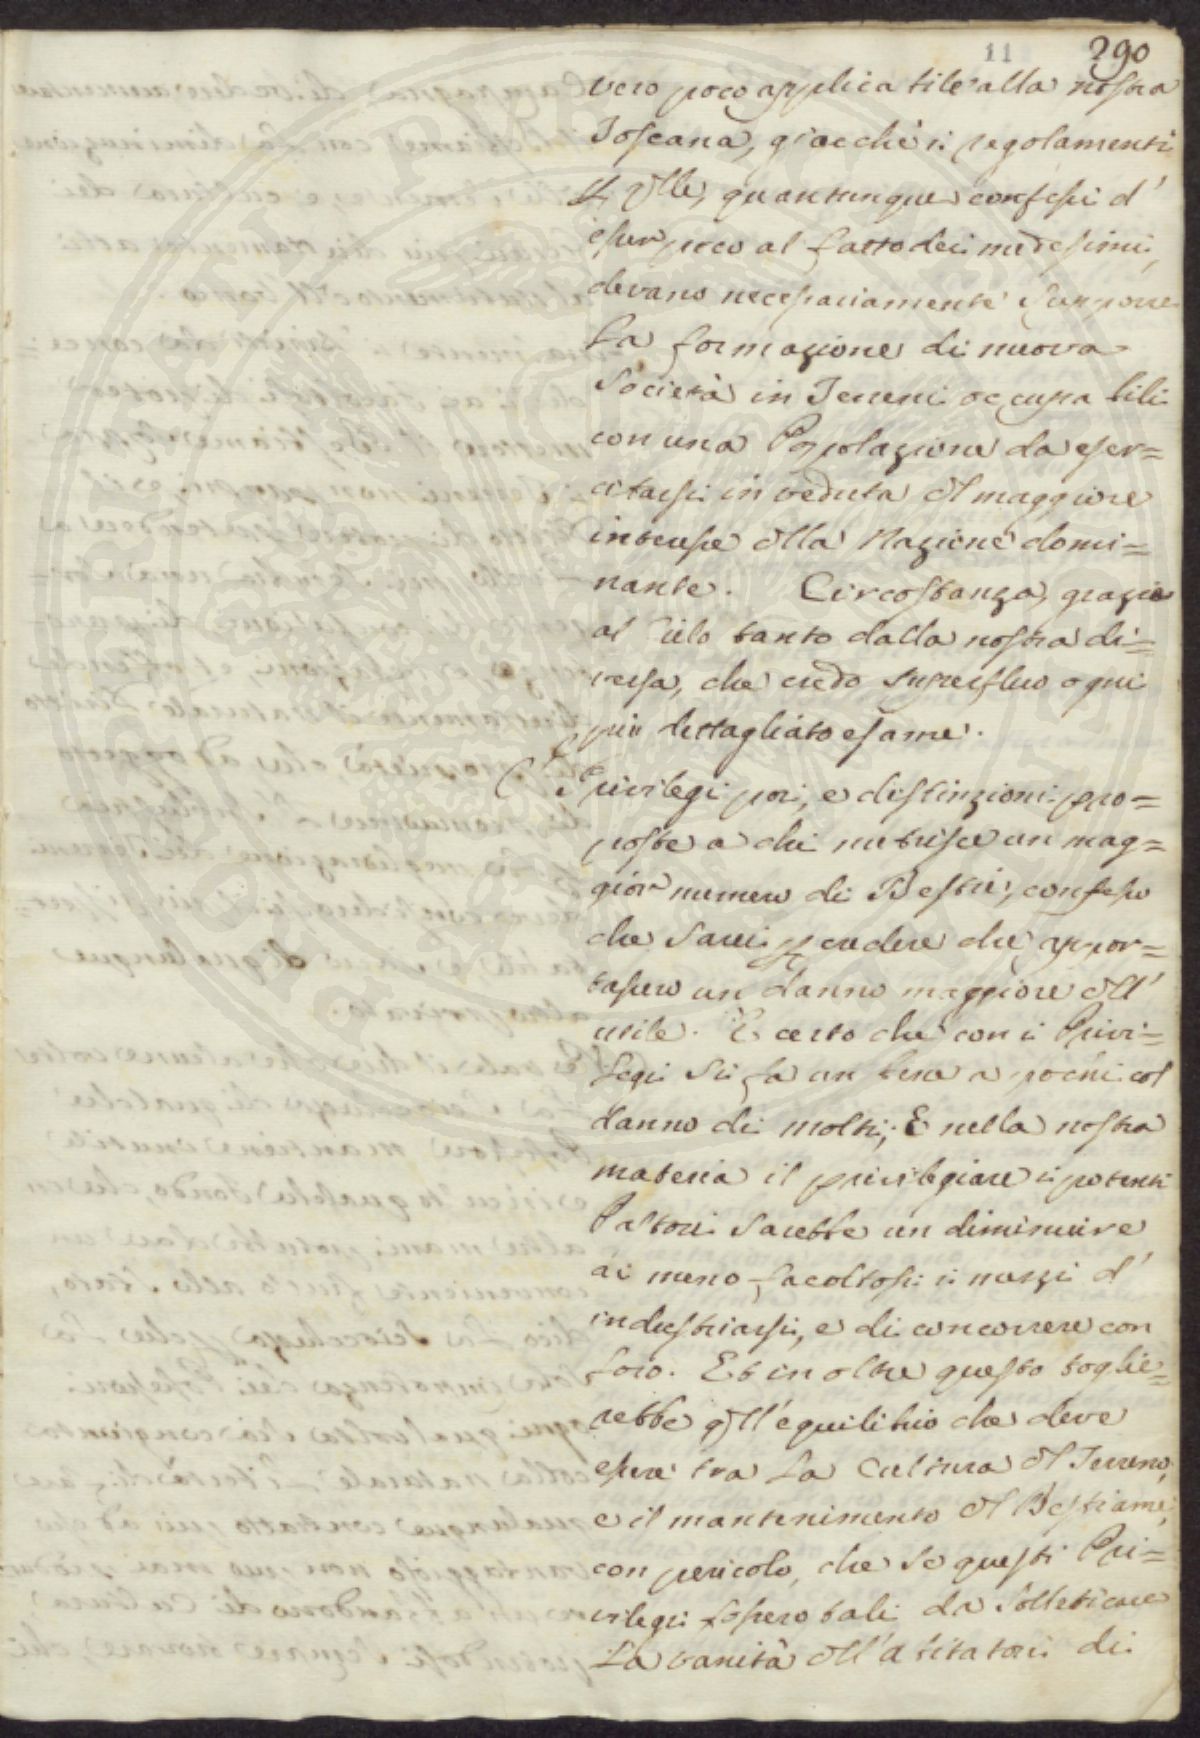 11 290
vero poco applicabile alla nostra
Toscana, giacchè i regolamenti
quantunque confessi d'
esser poco al fatto dei medesimi,
devano necessariamente supporre
La formazione di nuova
Società in Terreni occupabili
con una Popolazione da eser=
citarsi in veduta del maggiore
interesse della Nazione domi=
nante. Circostanza, grazie
al Cielo tanto dalla nostra di=
versa, che credo superfluo ogni
più dettagliato esame.
I Privilegi poi, e distinzioni pro=
poste a chi nutrisce un mag=
gior numero di Bestie, confesso
che sarei per credere che appor=
tassero un danno maggiore dell'
utile. È certo che con i Privi=
legi si fa un bene a pochi col
danno di molti; E nella nostra
materia il privilegiare i potenti
Pastori sarebbe un diminuire
ai meno facoltosi i mezzi d'
industriarsi, e di concorrere con
loro. Et in oltre questo toglie=
rebbe quell'equilibrio che deve
essere tra La Cultura del Terreno,
e il mantenimento del Bestiame,
con pericolo, che se questi Pri=
vilegi fossero tali da solleticare
La vanità dell'abitatori di